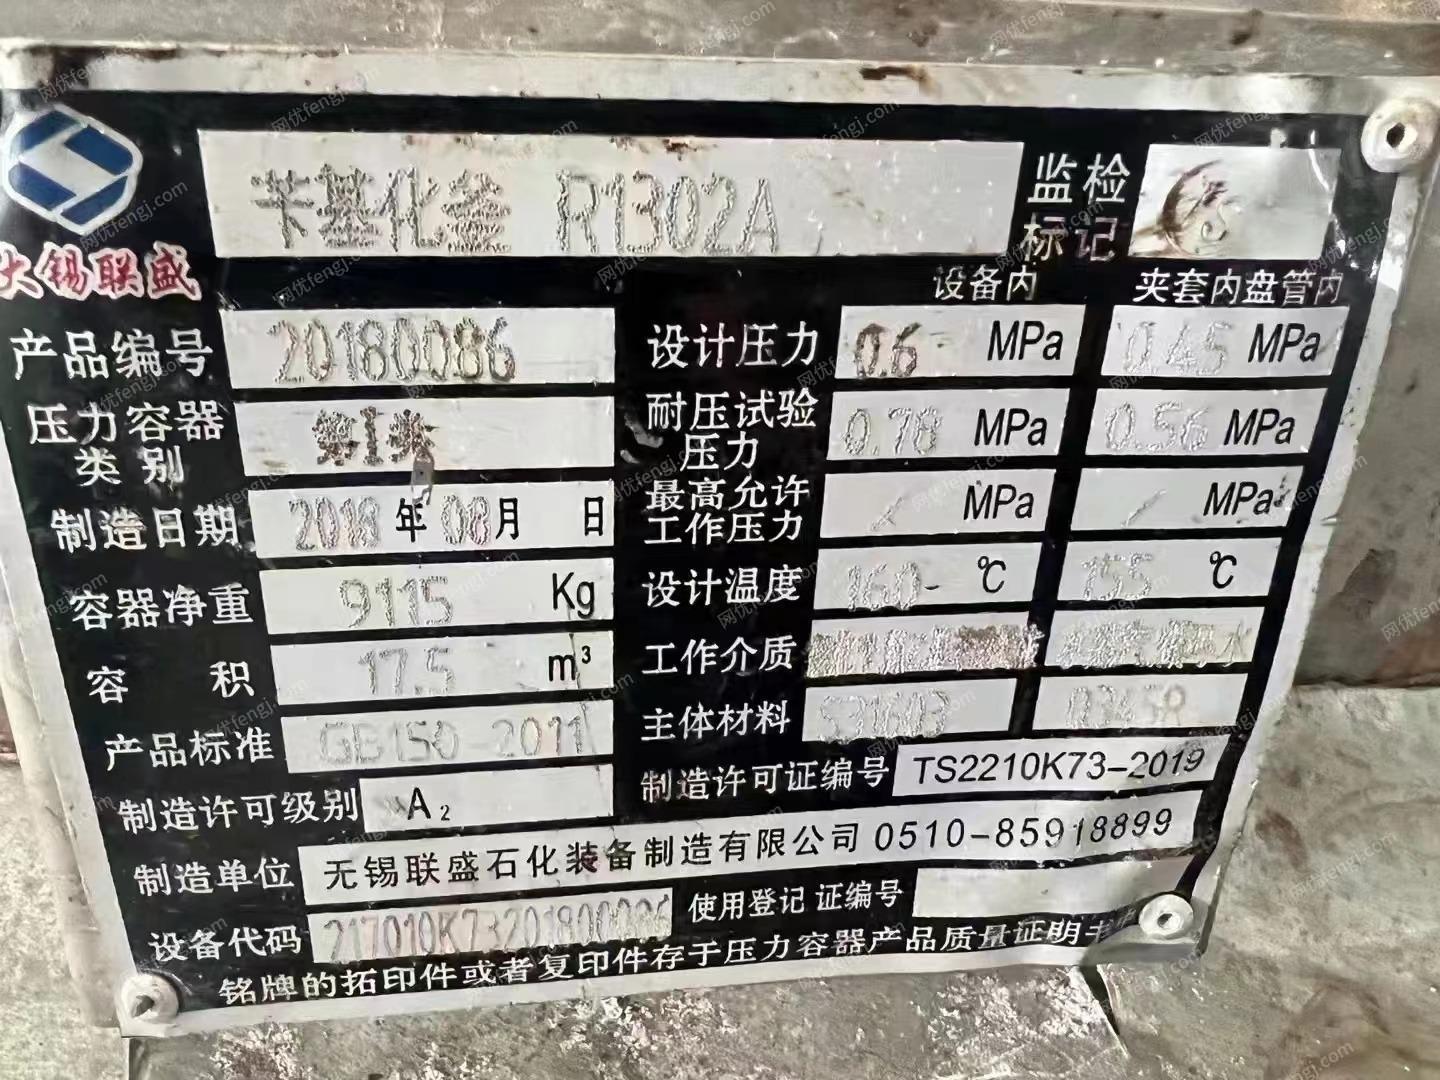 苄基化釜 R1302A
监检
标记
锡联盛
设备内 夹套内盘管内
产品编号 20180086
设计压力 0.6 MPa 0.45 MPa
压力容器
类别 第I类
耐压试验
压力 0.78 MPa 0.56 MPa
制造日期 2018年08月 日
最高允许
工作压力 / MPa / MPa
容器净重 9115 Kg
设计温度 160 ℃ 155 ℃
容 积 17.5 m³
工作介质
产品标准 GB150-2011
主体材料 S31603 Q345R
制造许可级别 A2
制造许可证编号 TS2210K73-2019
制造单位 无锡联盛石化装备制造有限公司 0510-85918899
设备代码 217010K7320180086
使用登记 证编号
铭牌的拓印件或者复印件存于压力容器产品质量证明书中
网优fengj.com